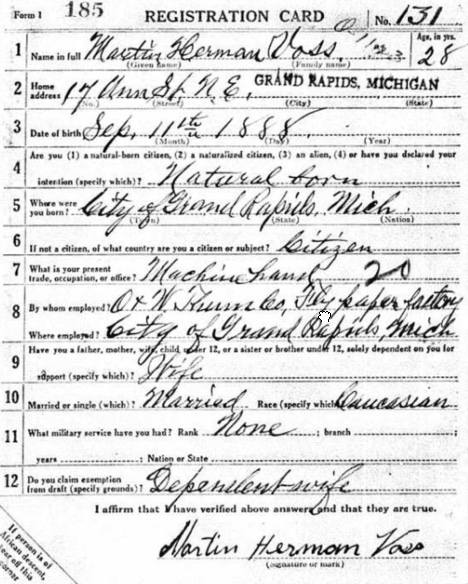 Form 1 185 REGISTRATION CARD No. 131
Age, in yrs.
1 Name in full Martin Herman Voss 28
(Given name) (Family name)
2 Home address 17 Ann St. N.E. GRAND RAPIDS, MICHIGAN
(No.) (Street) (City) (State)
3 Date of birth Sep. 11th 1888.
(Month) (Day) (Year)
4 Are you (1) a natural-born citizen, (2) a naturalized citizen, (3) an alien, (4) or have you declared your
intention (specify which)? Natural born
5 Where were you born? City of Grand Rapids, Mich.
(Town) (State) (Nation)
6 If not a citizen, of what country are you a citizen or subject? Citizen
7 What is your present trade, occupation, or office? Machine hand 20
8 By whom employed? O & W. Thum Co, Fly paper factory
Where employed? City of Grand Rapids, Mich
9 Have you a father, mother, wife, child under 12, or a sister or brother under 12, solely dependent on you for
support (specify which)? Wife
10 Married or single (which)? Married Race (specify which)? Caucasian
11 What military service have you had? Rank None ; branch
years ; Nation or State
12 Do you claim exemption from draft (specify grounds)? Dependent wife
I affirm that I have verified above answers and that they are true.
Martin Herman Voss
(Signature or mark)
If person is of
African descent,
tear off this
corner